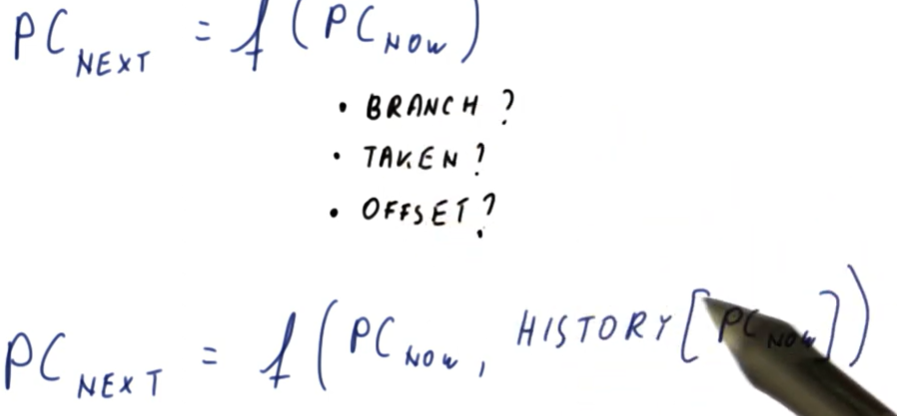 PC NEXT = f ( PC NOW )
• BRANCH ?
• TAKEN ?
• OFFSET ?
PC NEXT = f ( PC NOW , HISTORY [ PC NOW ] )